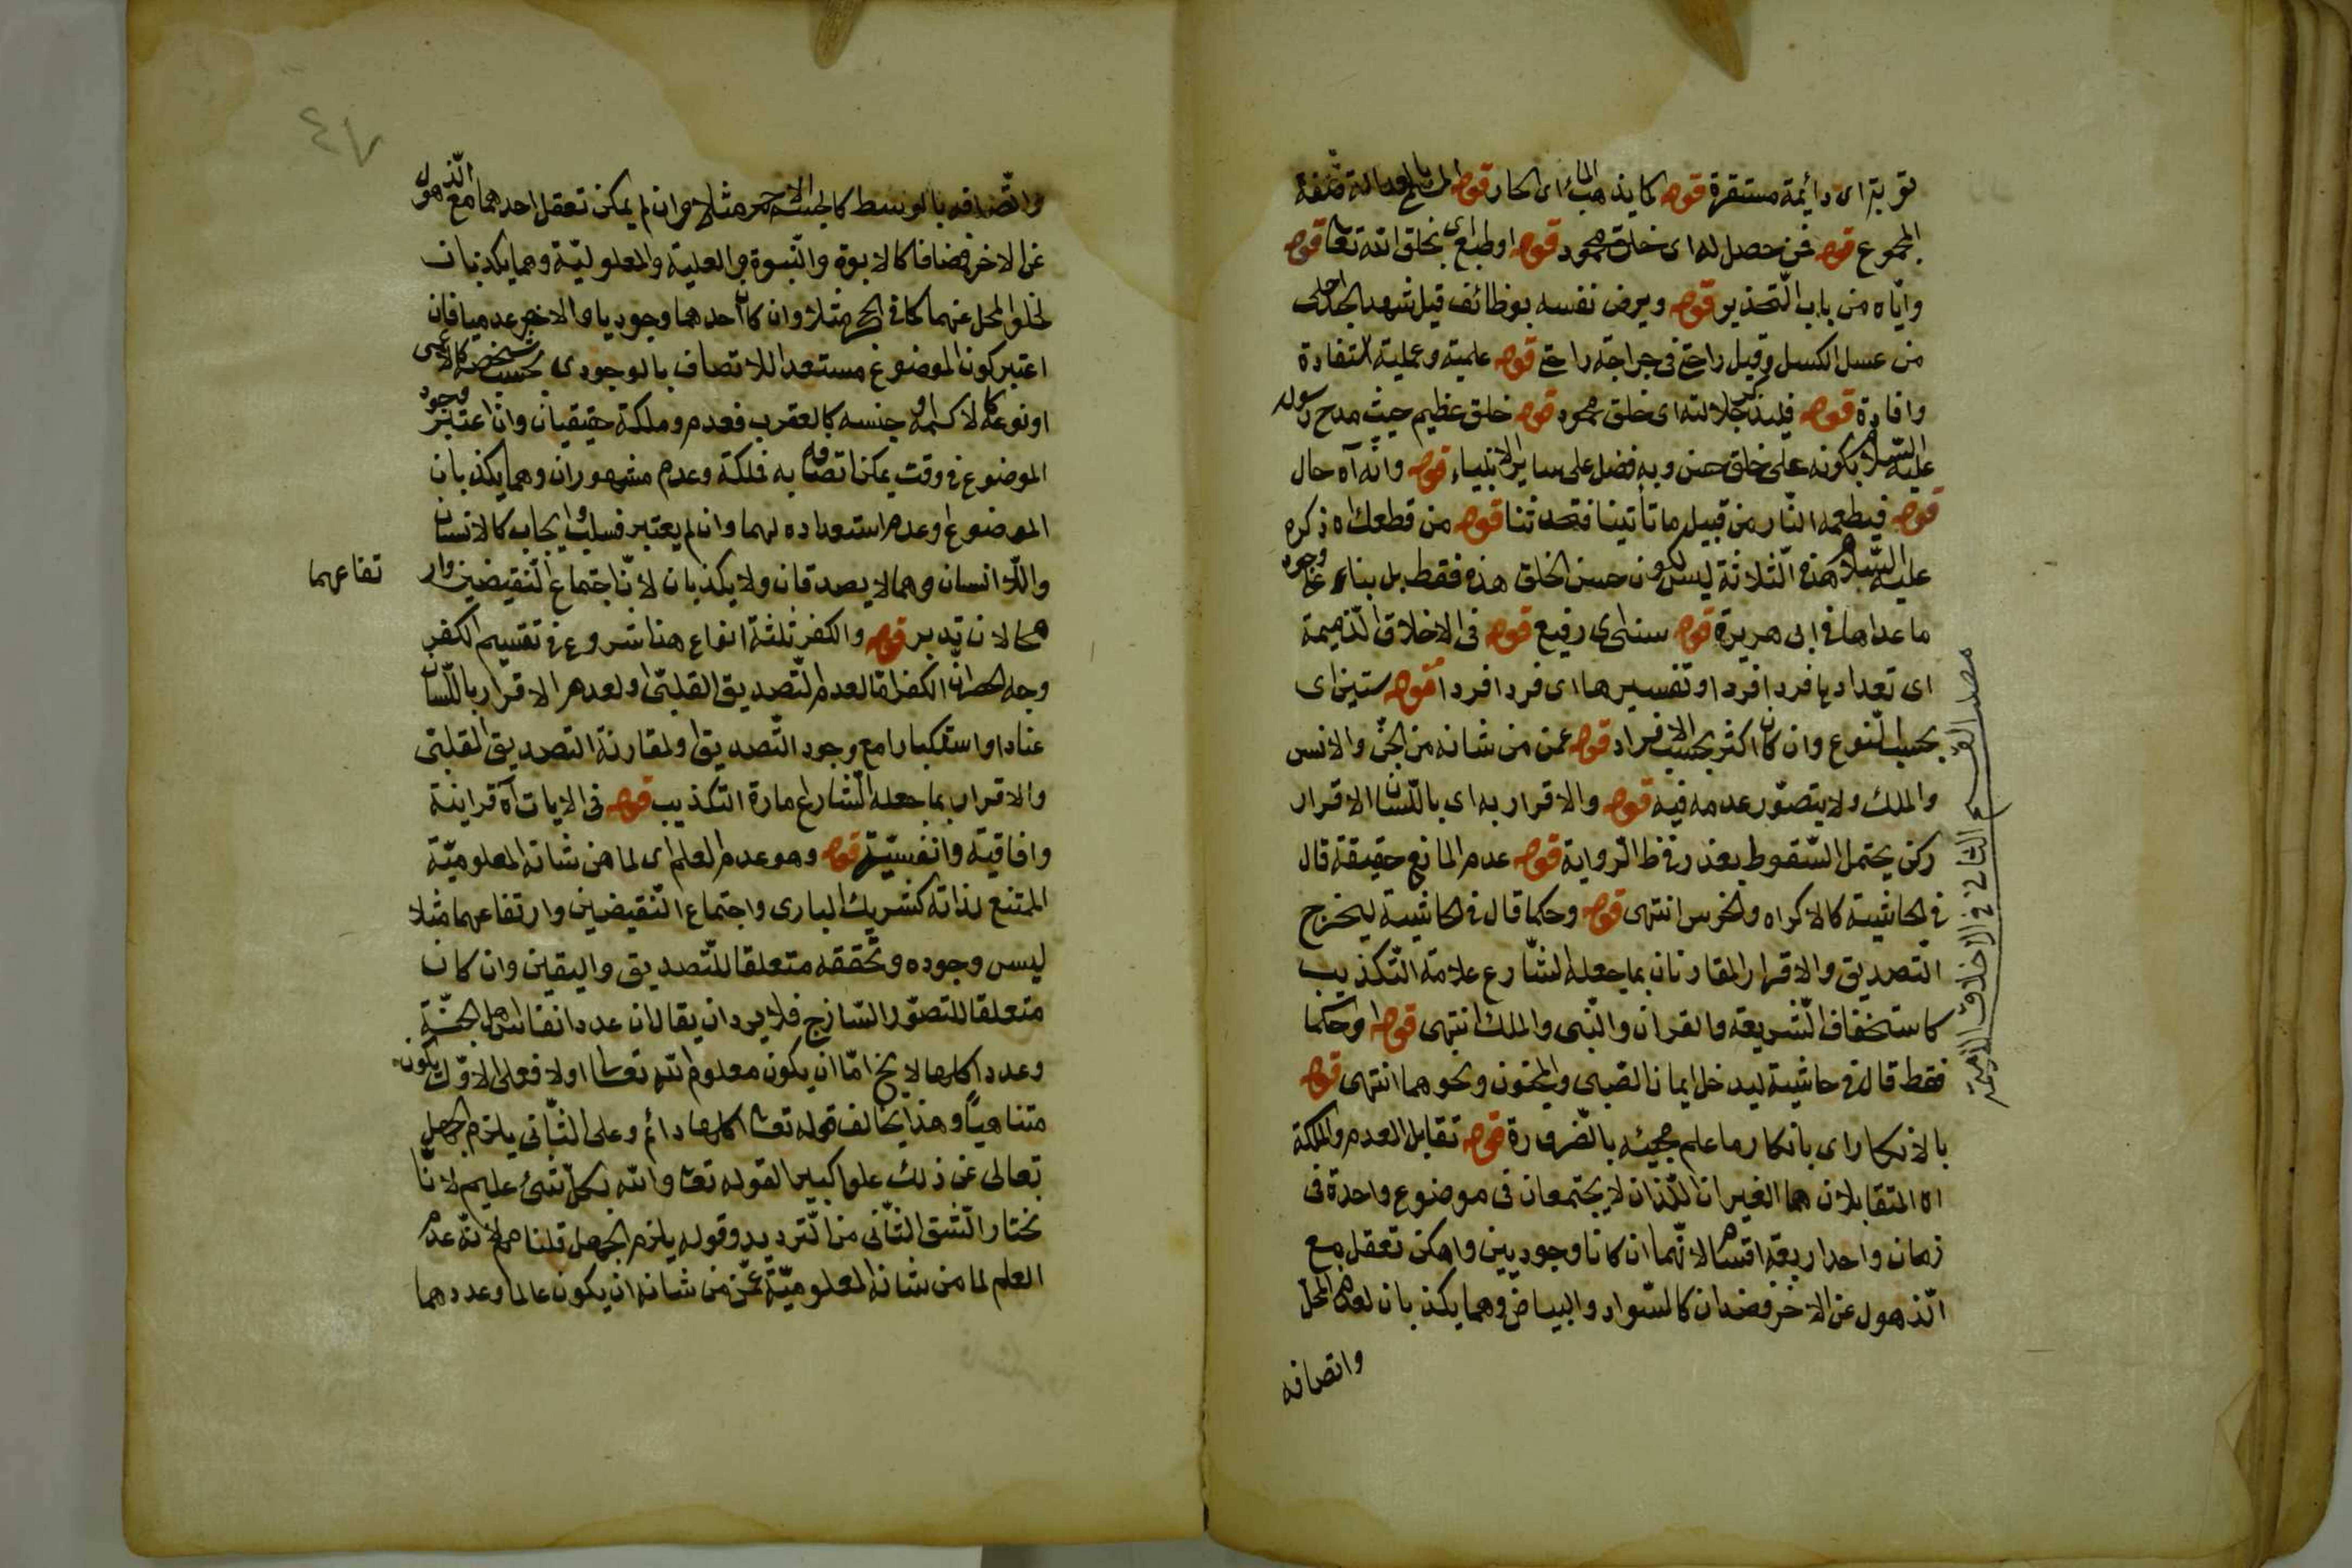 توبته اى دائمة مستقرة قوله كما يذهب الماء اى الحار قوله
المجموع قوله فمن حصل له اى خلق محمود قوله اوطبع اى بخلق الله تعا قوله
واياه من باب التحذير قوله ويرض نفسه بوظائف قيل شهد الجد احلى
من عسل الكسل وقيل راحتى فى جراحة راحتى قوله علمية وعملية استفادة
وافادة قوله فليذكر جلالته اى خلق محمود قوله خلق عظيم حيث مدح رسوله
عليه السلام بكونه على خلق حسن وبه فضل على ساير الانبياء قوله وانه آه حال
قوله فيطعمه النار من قبيل ما تأتينا فتحدثنا قوله من قطعك اه ذكره
عليه السلام هذه الثلاثة ليس لكون حسن الخلق هذه فقط بل بناء على وجود
ما عداها فى ابى هريرة قوله سنى اى رفيع قوله فى الاخلاق الذميمة
اى تعدادها فردا فردا وتفسيرها اى فردا فردا قوله ستين اى
بحسب النوع وان كان اكثر بحسب الافراد قوله عمن من شانه من الجن والانس
والملك ولا يتصور عدمه فيه قوله والاقرار به اى باللسان الاقرار
ركن يحتمل السقوط بعذر فى الرواية قوله عدم المانع حقيقة قال
فى الحاشية كالاكراه والخرس انتهى قوله وحكما قال فى الحاشية ليخرج
التصديق والاقرار المقارنان بما جعله الشارع علامة التكذيب
كاستخفاف الشريعة والقران والنبى والملك انتهى قوله اوحكما
فقط قال فى حاشية ليدخل ايمان الصبى والمجنون ونحوهما انتهى قوله
بالانكار اى بانكار ما علم مجيئه بالضرورة قوله تقابل العدم والملكة
اه المتقابلان هما الغيران اللذان لا يجتمعان فى موضوع واحدة فى
زمان واحد اربعة اقسام لانهما ان كانا وجوديين وامكن تعقل مع
الذهول عن الاخر فضدان كالسواد والبياض وهما يكذبان لعدم المحل
واتصافه
الاخلاق الذميمة
٤٧
واتصافه بالوسط كالجسم الاحمر مثلا وان لم يمكن تعقل احدهما مع الذهول
عن الاخر فمضافا كالابوة والبنوة والعلية والمعلولية وهما يكذبان
لخلو المحل عنهما كما فى الحجر مثلا وان كان احدهما وجوديا والاخر عدميا فان
اعتبر كون الموضوع مستعدا للاتصاف بالوجودى بحسب شخصه كالاعمى
او نوعه كالاكمه او جنسه كالعقرب فعدم وملكة حقيقيان وان اعتبر وجود
الموضوع فى وقت يمكن اتصافه به فملكة وعدم مشهوران وهما يكذبان
الموضوع اوعدم استعداده لهما وان لم يعتبر فسلب وايجاب كالانسان
واللا انسان وهما لا يصدقان ولا يكذبان لان اجتماع النقيضين وار
تفاعهما
محالان تدبر قوله والكفر ثلثة انواع هنا شروع فى تقسيم الكفر
وجه الحصر ان الكفر اما لعدم التصديق القلبى اولعدم الاقرار باللسان
عنادا او استكبارا مع وجود التصديق اولمقارنة التصديق القلبى
والاقرار بما جعله الشارع امارة التكذيب قوله فى الايات آه قرانية
وافاقية وانفسية قوله وهو عدم العلم اى لما من شانه المعلومية
الممتنع لذاته كشريك البارى واجتماع النقيضين وارتفاعهما مثلا
ليس وجوده وتحققه متعلقا للتصديق واليقين وان كان
متعلقا للتصور الساذج فلا يرد ان يقال ان عدد انفاس اهل الجنة
وعدد اكلها لا يخ اما ان يكون معلوم الله تعالى اولا فعلى الاول يكون
متناهيا وهذا يخالف قوله تعا اكلها دائم وعلى الثانى يلزم الجهل
تعالى عن ذلك علوا كبيرا لقوله تعا والله بكل شئ عليم لانا
نختار الشق الثانى من الترديد وقوله يلزم الجهل قلنا مم لانه عدم
العلم لما من شانه المعلومية عمن من شانه ان يكون عالما وعددهما